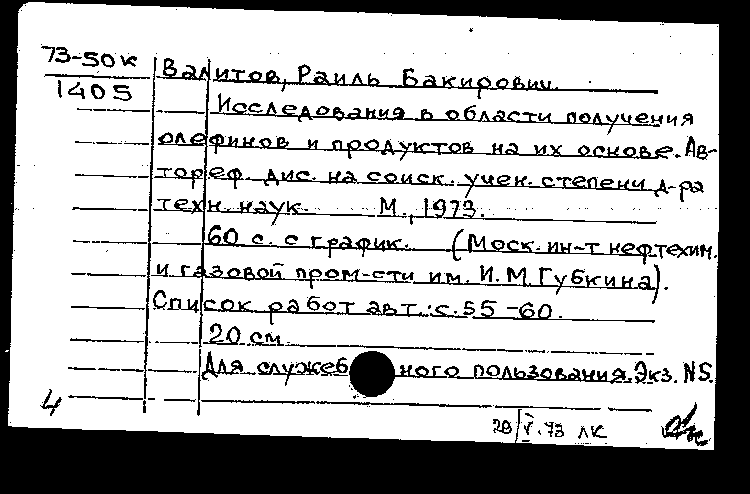 73-50к
1405
Валитов, Раиль Бакирович.
Исследования в области получения
олефинов и продуктов на их основе. Ав-
тореф. дис. на соиск. учен. степени д-ра
техн. наук. М., 1973.
60 с. с график. (Моск. ин-т нефтехим.
и газовой пром-сти им. И.М.Губкина).
Список работ авт.: с. 55-60.
20 см.
Для служебного пользования. Экз. N5.
4
28/V.73 ЛК